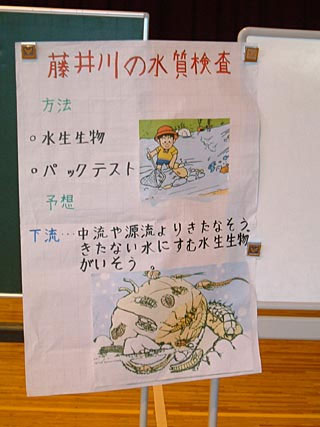 藤井川の水質検査
方法
○水生生物
○パックテスト
予想
下流…中流や源流よりきたなそう。
きたない水にすむ水生生物
がいそう